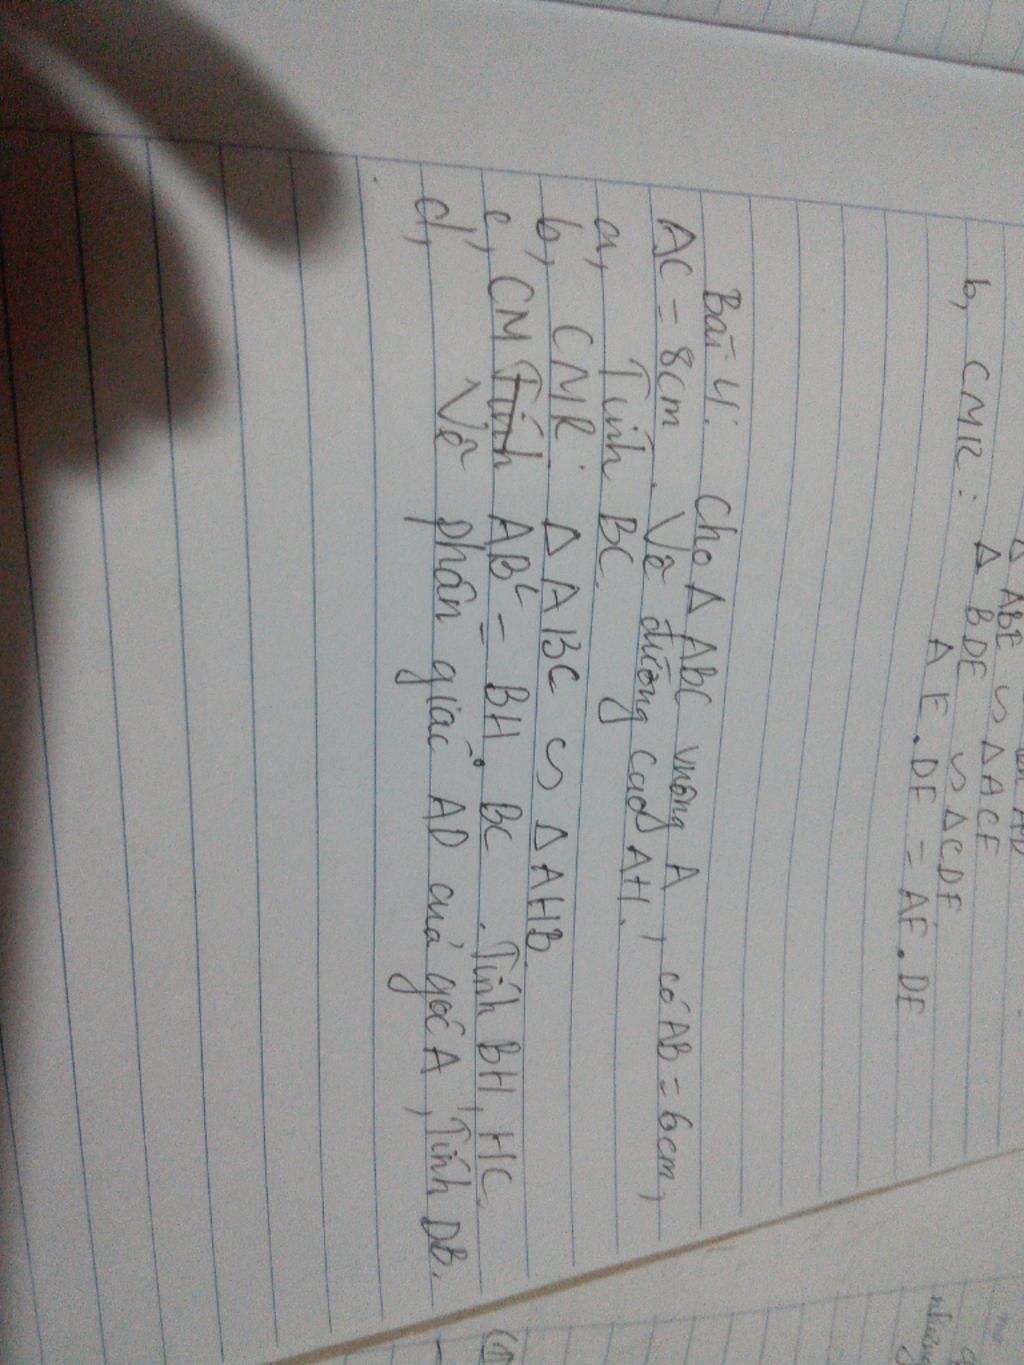 Δ ABE ∽ Δ ACF
b, CMR: Δ BDE ∽ Δ CDF
AE.DF = AF.DE
Bài 4: Cho Δ ABC vuông A, có AB = 6cm,
AC = 8cm. Vẽ đường cao AH.
a, Tính BC.
b, CMR: Δ ABC ∽ Δ AHB.
c, CM Tính AB² = BH. BC. Tính BH, HC.
d, Vẽ phân giác AD của góc A, Tính DB.